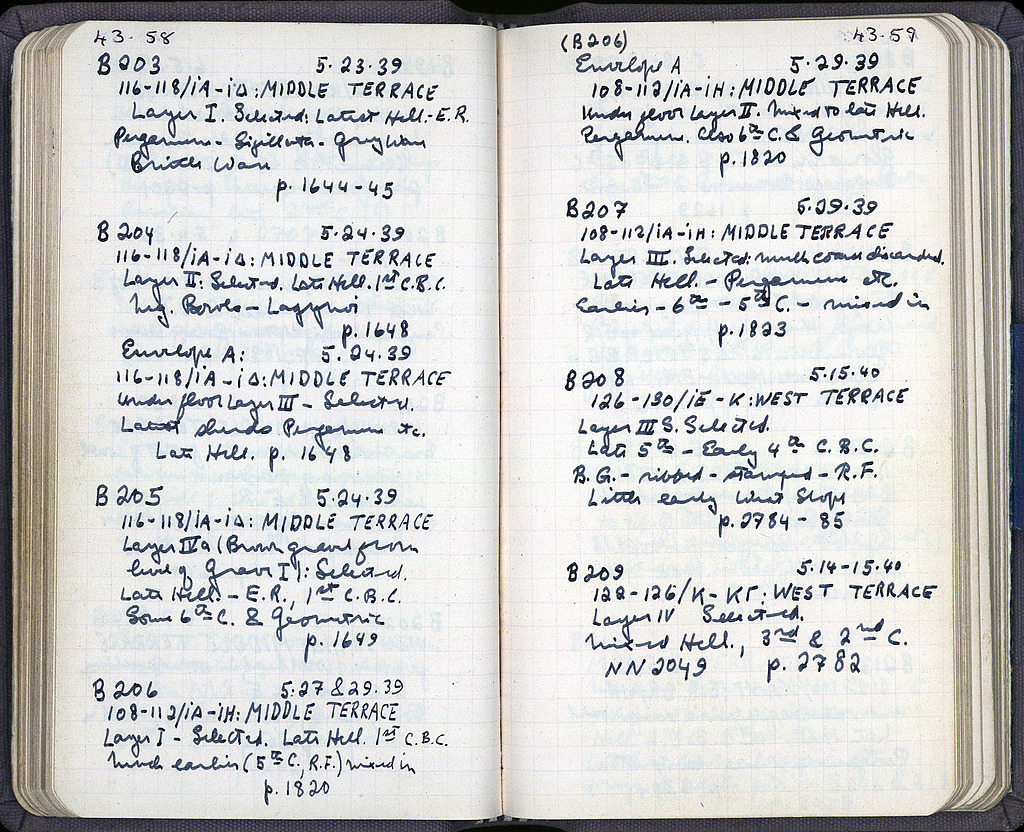 43-58
B203 5.23.39
116-118/ΙΑ-ΙΔ: MIDDLE TERRACE
Layer I. Selected: Latest Hell.-E.R.
Pergamene - Sigillata - Gray Ware
Brittle Ware
p. 1644-45
B204 5.24.39
116-118/ΙΑ-ΙΔ: MIDDLE TERRACE
Layer II: Selected. Late Hell. 1st C.B.C.
Meg. Bowls - Lagynoi
p. 1648
Envelope A: 5.24.39
116-118/ΙΑ-ΙΔ: MIDDLE TERRACE
Under floor Layer III - Selected.
Latest sherds Pergamene etc.
Late Hell. p. 1648
B205 5.24.39
116-118/ΙΑ-ΙΔ: MIDDLE TERRACE
Layer IIa (Brown gravel from
level of Grave I): Selected.
Late Hell. - E.R., 1st C.B.C.
Some 6th C. & Geometric
p. 1649
B206 5.27 & 29.39
108-112/ΙΑ-ΙΗ: MIDDLE TERRACE
Layer I - Selected. Late Hell. 1st C.B.C.
Much earlier (5th C., R.F.) mixed in
p. 1820
43-59
(B206)
Envelope A 5.29.39
108-112/ΙΑ-ΙΗ: MIDDLE TERRACE
Under floor Layer II. Mixed to late Hell.
Pergamene. Also 6th C. & Geometric
p. 1820
B207 5.29.39
108-112/ΙΑ-ΙΗ: MIDDLE TERRACE
Layer III. Selected: much coarse discarded.
Late Hell. - Pergamene etc.
Earlier - 6th - 5th C. - mixed in
p. 1823
B208 5.15.40
126-130/ΙΕ-Κ: WEST TERRACE
Layer III S. Selected.
Late 5th - Early 4th C. B.C.
B.G. - ribbed - stamped - R.F.
Little early West Slope
p. 2784-85
B209 5.14-15.40
122-126/Κ-ΚΓ: WEST TERRACE
Layer IV Selected.
Mixed Hell., 3rd & 2nd C.
NN 2049 p. 2782